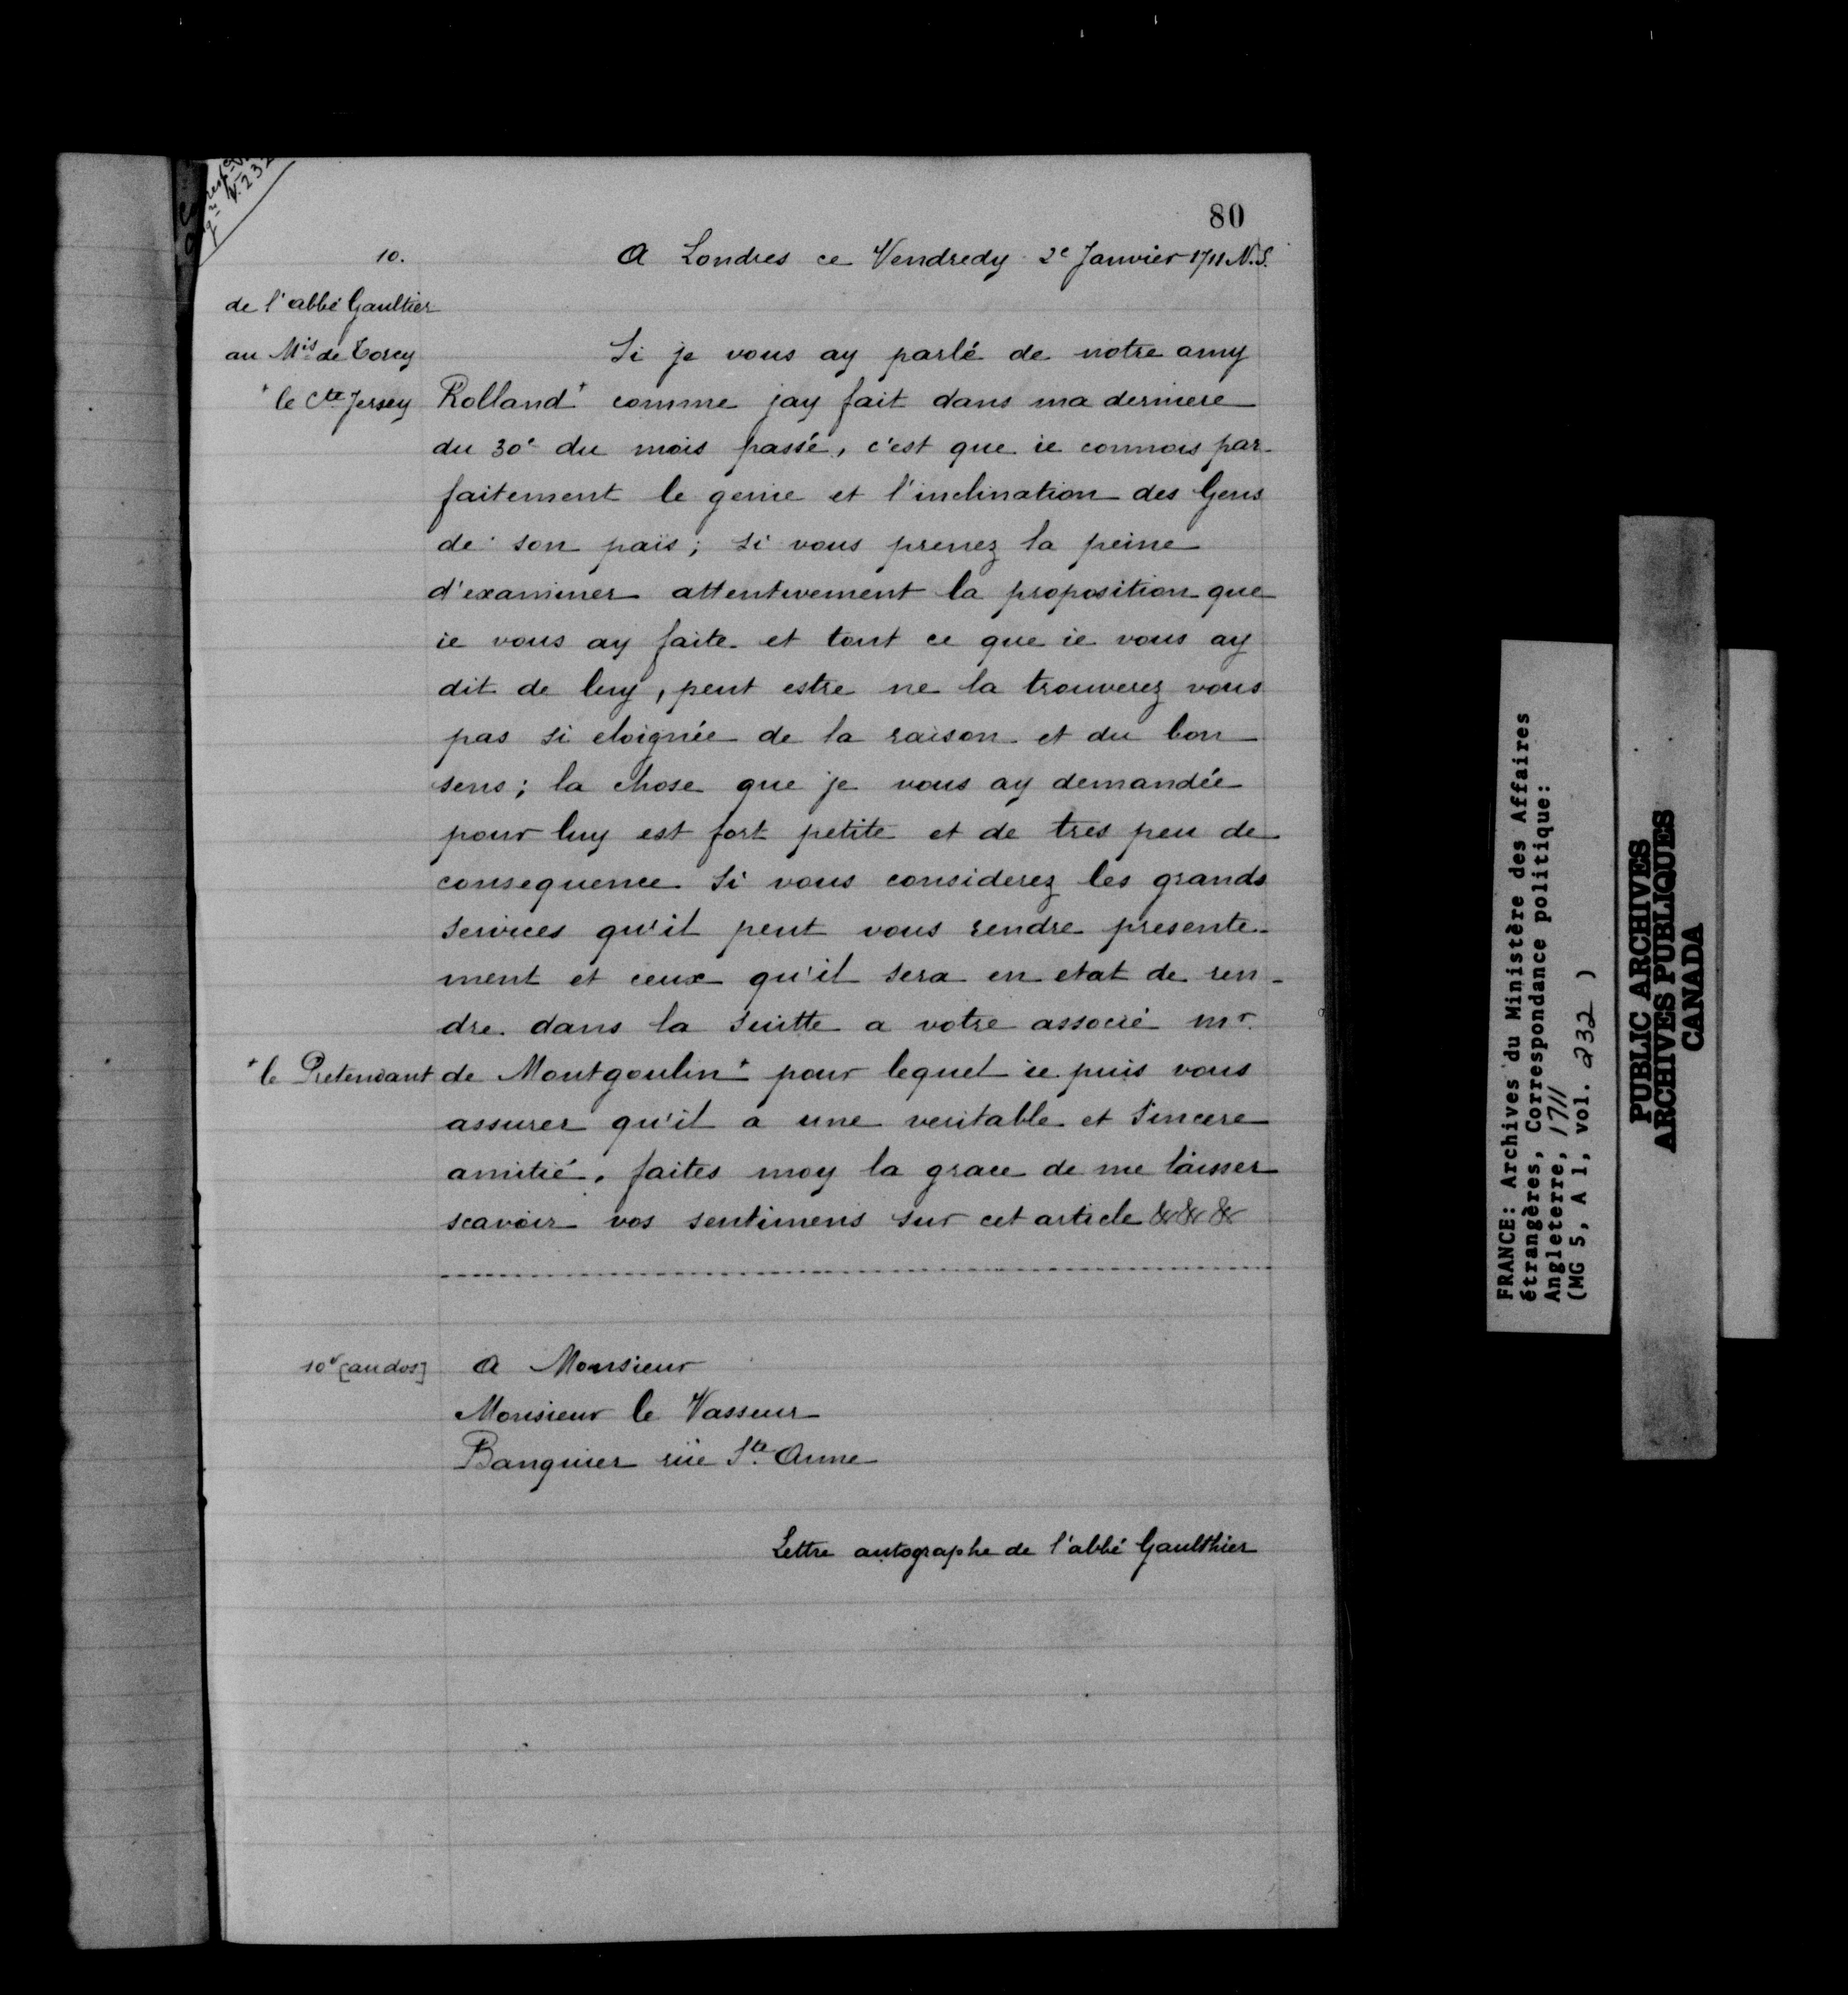 80
10.
A Londres ce Vendredy 2e Janvier 1711 N.S.
de l'abbé Gaultier
au Mis de Torcy
Si je vous ay parlé de notre amy
+ le Cte Jersey
Rolland+ comme jay fait dans ma derniere
du 30e du mois passé, c'est que ie connois par-
faitement le genie et l'inclination des Gens
de son païs; si vous prenez la peine
d'examiner attentivement la proposition que
ie vous ay faite et tout ce que ie vous ay
dit de luy, peut estre ne la trouverez vous
pas si eloignée de la raison et du bon
sens; la chose que je vous ay demandée
pour luy est fort petite et de tres peu de
consequence si vous considerez les grands
services qu'il peut vous rendre presente-
ment et ceux qu'il sera en etat de ren-
dre dans la suitte a votre associé mr.
+ le Pretendant
de Montgoulin+ pour lequel ie puis vous
assurer qu'il a une veritable et sincere
amitié. faites moy la grace de me laisser
scavoir vos sentimens sur cet article &&&
10v [au dos]
A Monsieur
Monsieur le Vasseur
Banquier rüe Ste Anne
Lettre autographe de l'abbé Gaulthier
FRANCE: Archives du Ministère des Affaires
étrangères, Correspondance politique:
Angleterre, 1711
(MG 5, A 1, vol. 232 )
PUBLIC ARCHIVES
ARCHIVES PUBLIQUES
CANADA